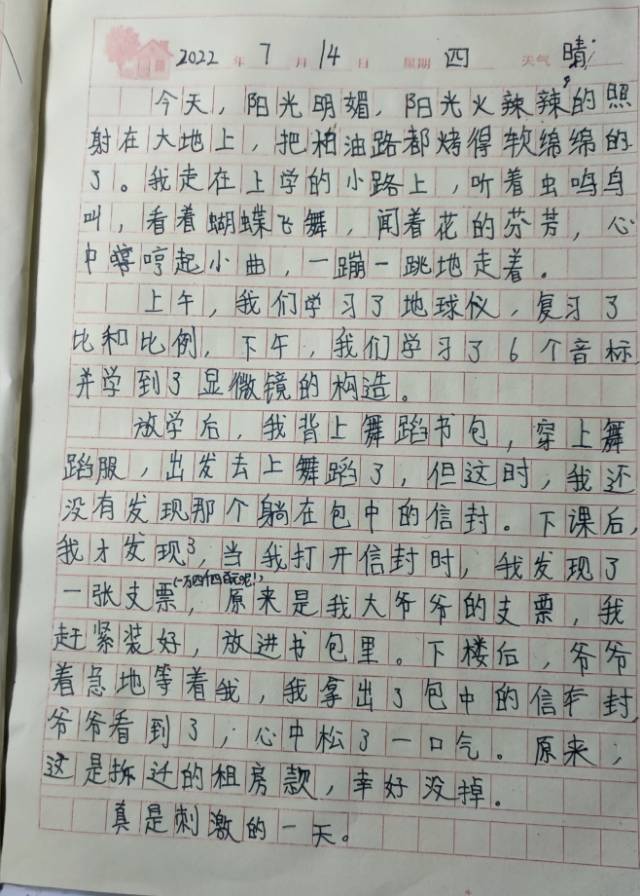 2022年7月14日 星期四 天气晴
今天，阳光明媚，阳光火辣辣的照
射在大地上，把柏油路都烤得软绵绵的
了。我走在上学的小路上，听着虫鸣鸟
叫，看着蝴蝶飞舞，闻着花的芬芳，心
中哼起小曲，一蹦一跳地走着。
上午，我们学习了地球仪，复习了
比和比例，下午，我们学习了6个音标，
并学到了显微镜的构造。
放学后，我背上舞蹈书包，穿上舞
蹈服，出发去上舞蹈了，但这时，我还
没有发现那个躺在包中的信封。下课后，
我才发现了，当我打开信封时，我发现了
一张支票，原来是我大爷爷的支票，我
赶紧装好，放进书包里。下楼后，爷爷
着急地等着我，我拿出了包中的信封，
爷爷看到了，心中松了一口气。原来，
这是拆迁的租房款，幸好没掉。
真是刺激的一天。